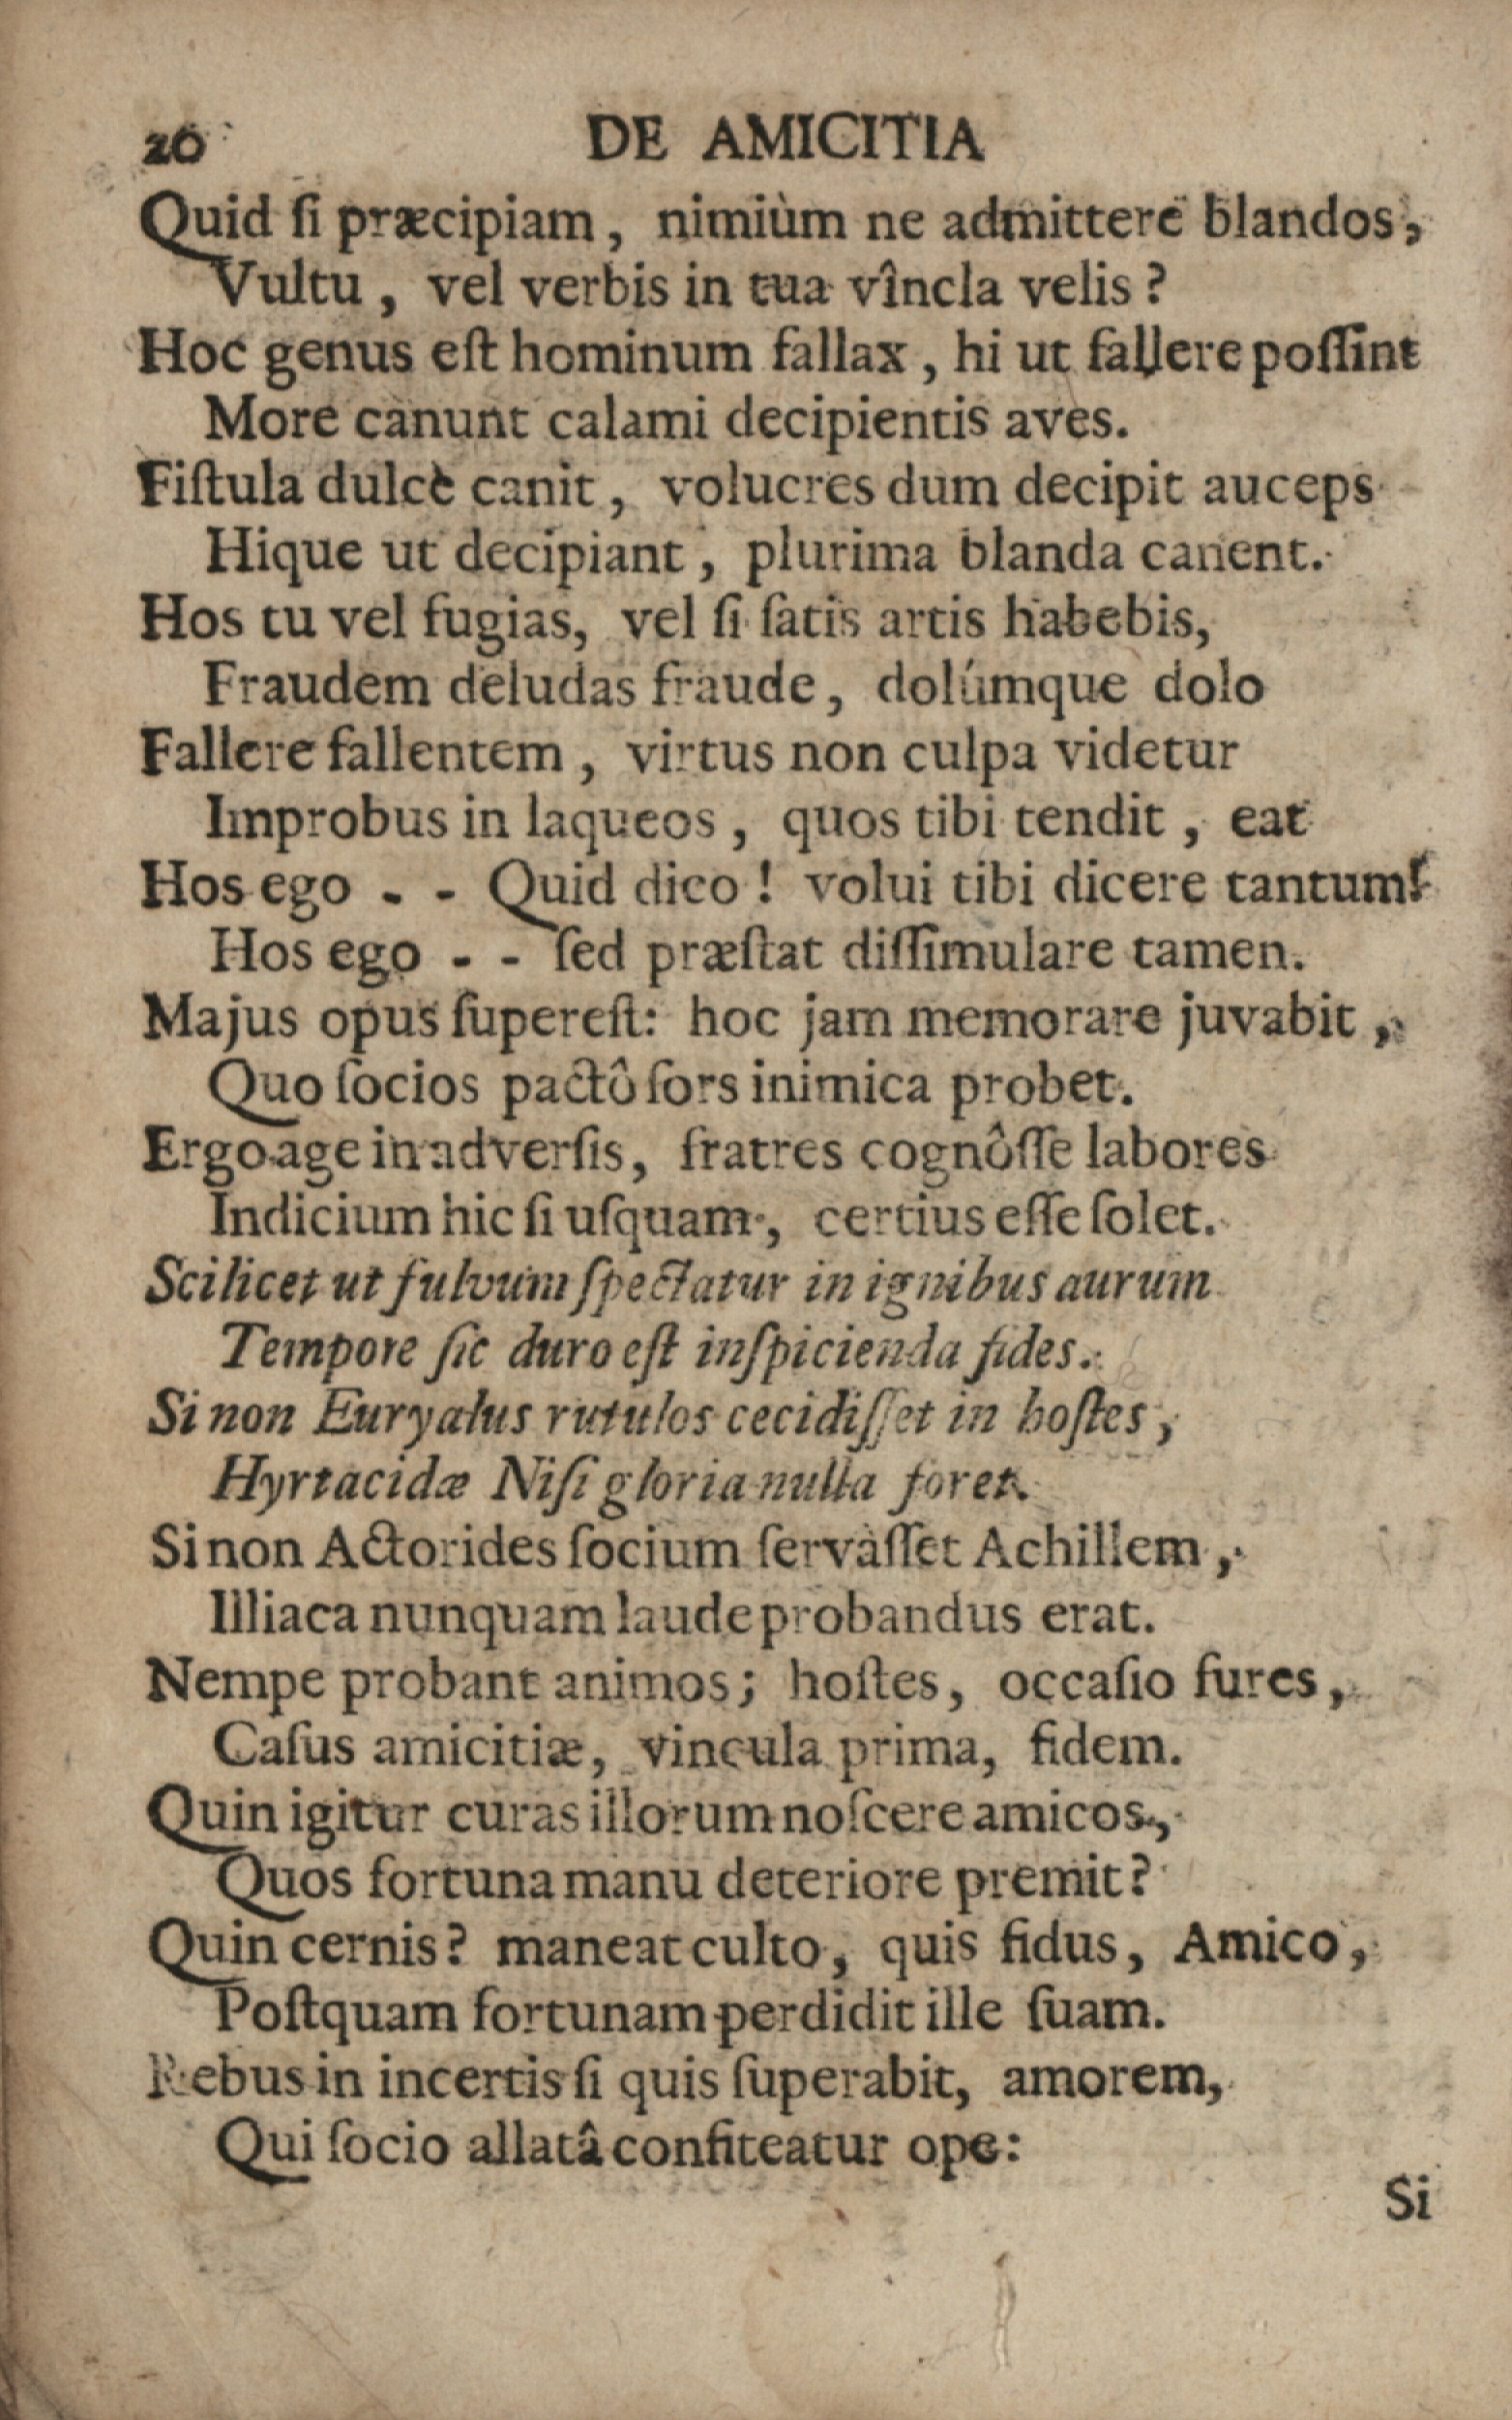 20 DE AMICITIA
Quid ſi præcipiam, nimiùm ne admittere blandos,
Vultu, vel verbis in tua vîncla velis?
Hoc genus eſt hominum fallax, hi ut fallere poſſint
More canunt calami decipientis aves.
Fiſtula dulcè canit, volucres dum decipit auceps
Hique ut decipiant, plurima blanda canent.
Hos tu vel fugias, vel ſi ſatis artis habebis,
Fraudem deludas fraude, dolúmque dolo
Fallere fallentem, virtus non culpa videtur
Improbus in laqueos, quos tibi tendit, eat
Hos ego - - Quid dico! volui tibi dicere tantum!
Hos ego - - ſed præſtat diſſimulare tamen.
Majus opus ſupereſt: hoc jam memorare juvabit,
Quo ſocios pactô ſors inimica probet.
Ergo age in adverſis, fratres cognôſſe labores
Indicium hic ſi uſquam, certius eſſe ſolet.
Scilicet ut fulvum ſpectatur in ignibus aurum
Tempore ſic duro eſt inſpicienda fides.
Si non Euryalus rutulos cecidiſſet in hoſtes,
Hyrtacidæ Niſi gloria nulla foret.
Si non Actorides ſocium ſervàſſet Achillem,
Illiaca nunquam laude probandus erat.
Nempe probant animos; hoſtes, occaſio fures,
Caſus amicitiæ, vincula prima, fidem.
Quin igitur curas illorum noſcere amicos,
Quos fortuna manu deteriore premit?
Quin cernis? maneat culto, quis fidus, Amico,
Poſtquam fortunam perdidit ille ſuam.
Rebus in incertis ſi quis ſuperabit, amorem,
Qui ſocio allatâ confiteatur ope:
Si